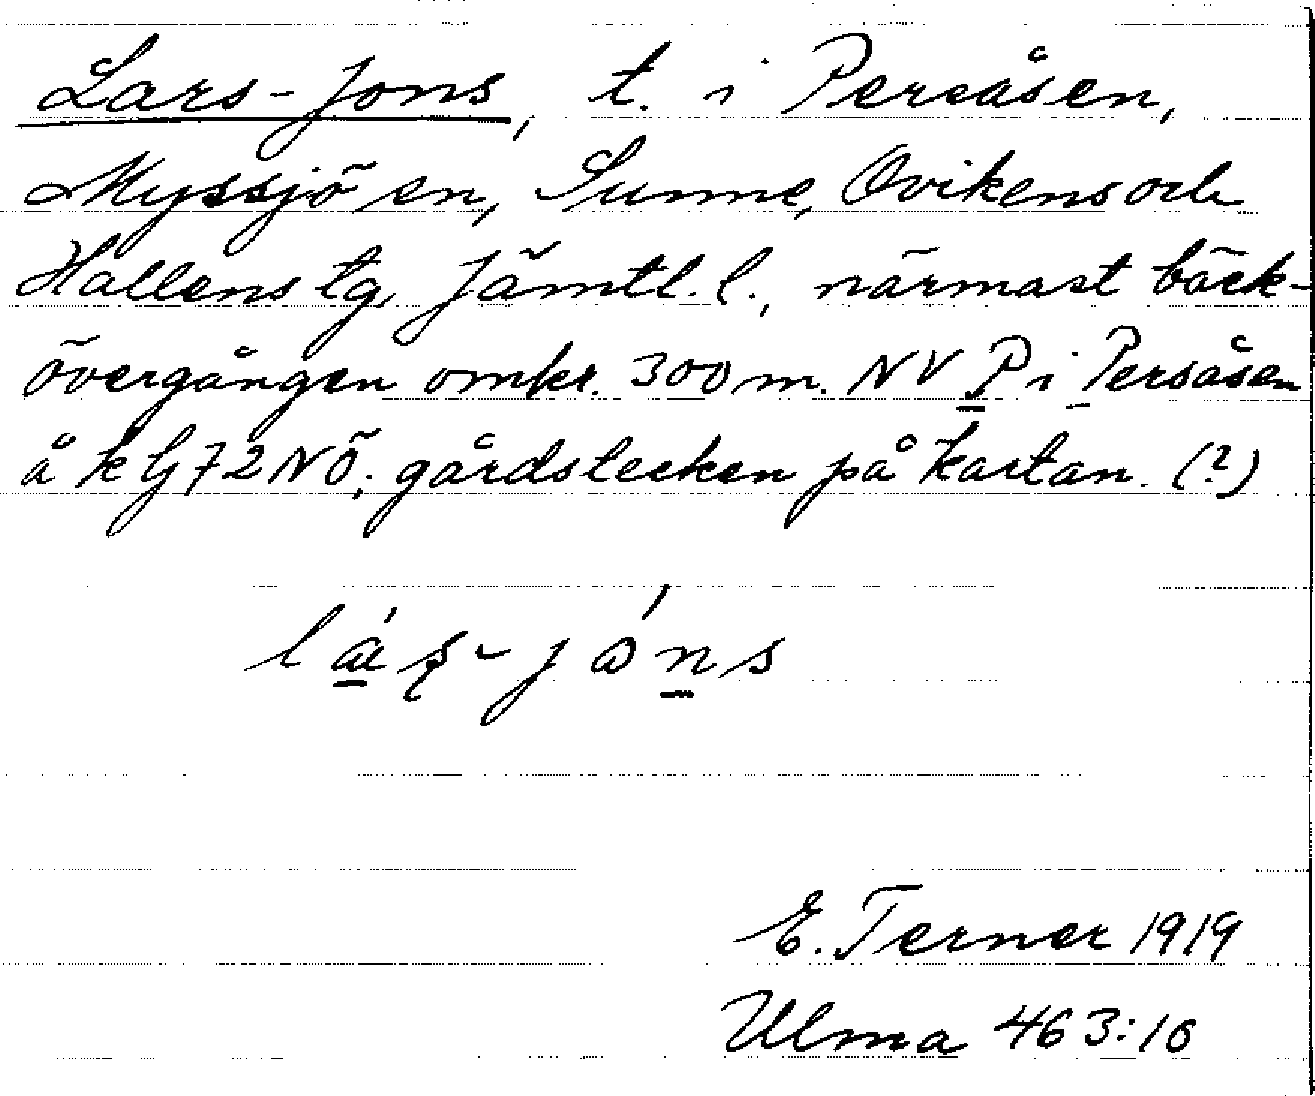 Lars-Jons, t. i Persåsen,
Myssjö sn, Sunne, Ovikens och
Hallens tg, Jämtl. l., närmast bäck-
övergången omkr. 300 m. NV P i Persåsen
å k bj 72 NÖ; gårdstecken på kartan. (?)
lás-jóns
E. Terner 1919
Ulma 463:10